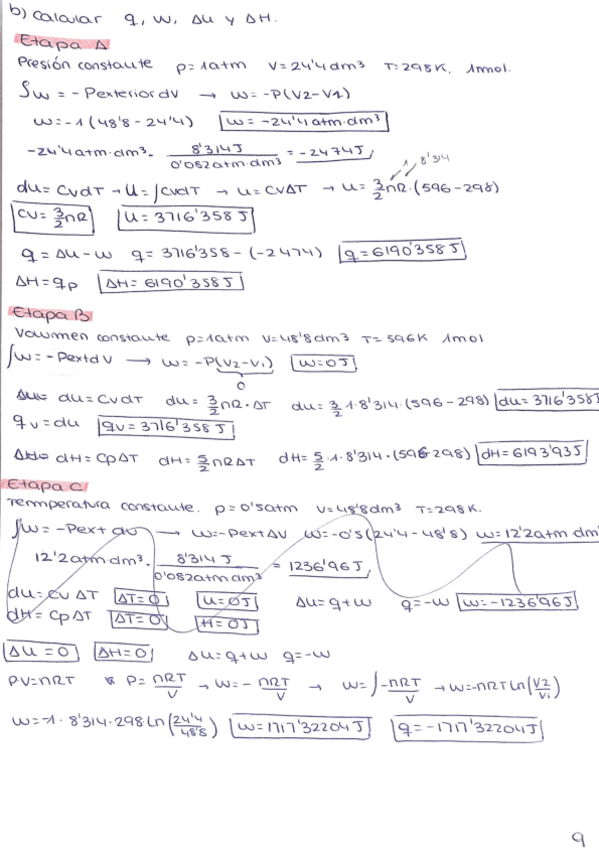 b) Calcular q, w, ΔU y ΔH.
Etapa A
Presión constante p=1atm V=24'4dm³ T=298K, 1mol.
∫w=-Pexterior dV → w=-P(V2-V1)
w=-1(48'8-24'4) w=-24'4 atm·dm³
-24'4 atm·dm³· 8'314J / 0'082atm·dm³ = -2474J
1 8'314
du=CvdT → U=∫CvdT → U=CvΔT → U=3/2 nR·(596-298)
Cv=3/2 nR U=3716'358J
q=ΔU-w q=3716'358-(-2474) q=6190'358J
ΔH=qp ΔH=6190'358J
Etapa B
Volumen constante p=1atm V=48'8dm³ T=596K 1mol
∫w=-Pext dV → w=-P(V2-V1) w=0J
0
ΔU= du=CvdT du=3/2 nR·ΔT du=3/2·1·8'314·(596-298) du=3716'358J
qv=du qv=3716'358J
ΔH= dH=CpΔT dH=5/2 nRΔT dH=5/2·1·8'314·(596-298) dH=6193'93J
Etapa C
Temperatura constante. p=0'5atm V=48'8dm³ T=298K.
∫w=-Pext dv → w=-Pext ΔV w=-0'5(24'4-48'8) w=12'2atm dm³
12'2atm·dm³· 8'314J / 0'082atm dm³ = 1236'96J
du=CvΔT ΔT=0 U=0J ΔU=q+w q=-w w=-1236'96J
dH=CpΔT ΔT=0 H=0J
ΔU=0 ΔH=0 ΔU=q+w q=-w
PV=nRT P=nRT/V → w=-nRT/V → w=∫-nRT/V → w=-nRT Ln(V2/V1)
w=-1·8'314·298 Ln(24'4/48'8) w=1717'32204J q=-1717'32204J
9